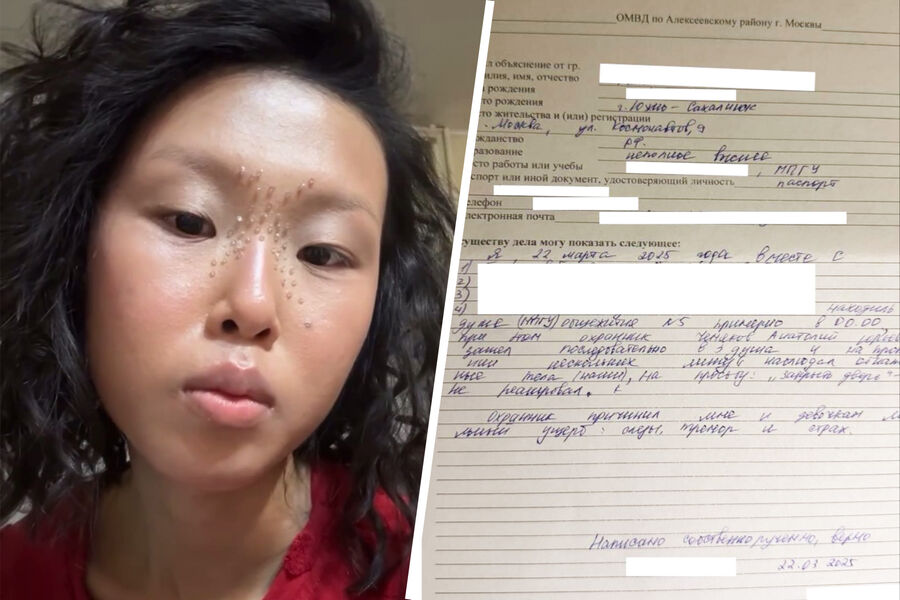 ОМВД по Алексеевскому району г. Москвы
л объяснение от гр.
илия, имя, отчество
а рождения
то рождения г. Южно-Сахалинск
сто жительства и (или) регистрации
. Москва, ул. Космонавтов, 9
жданство РФ.
разование неполное высшее
сто работы или учебы , МПГУ
спорт или иной документ, удостоверяющий личность паспорт
елефон
лектронная почта
существу дела могу показать следующее:
Я, 22 марта 2025 года вместе с
1)
2)
3)
4) находил
душе (МПГУ) общежития №5 примерно в 00.00,
при этом охранник Анатолий
зашел последовательно в 3 душа и на про
нескольких минут наблюдал
тела (наши), на просьбу: „закрыть дверь"
не реагировал.
Охранник причинил мне и девочкам
ущерб: слезы, тремор и страх.
Написано собственноручно, верно
22.03 2025